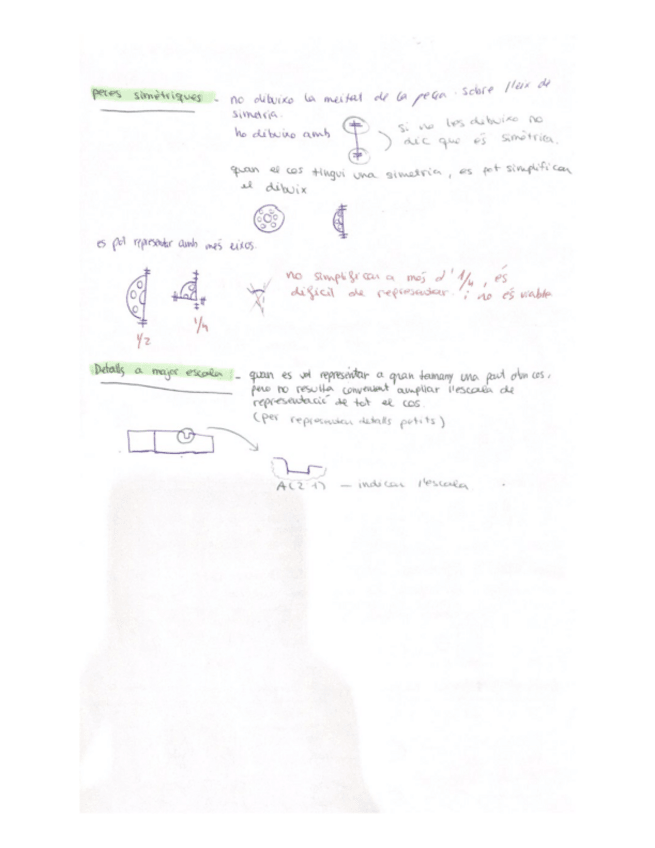 peces simètriques - no dibuixo la meitat de la peça. Sobre l'eix de
simetria.
ho dibuixo amb
si no les dibuixo no
dic que és simètrica.
quan el cos tingui una simetria, es pot simplificar
el dibuix
es pot representar amb més eixos.
no simplificar a més d'1/4, és
difícil de representar. i no és
1/2
1/4
Detalls a major escala - quan es vol representar a gran tamany una part d'un cos,
pero no resulta convenient ampliar l'escala de
representació de tot el cos.
(per representar detalls petits)
A(2:1) — indicar l'escala